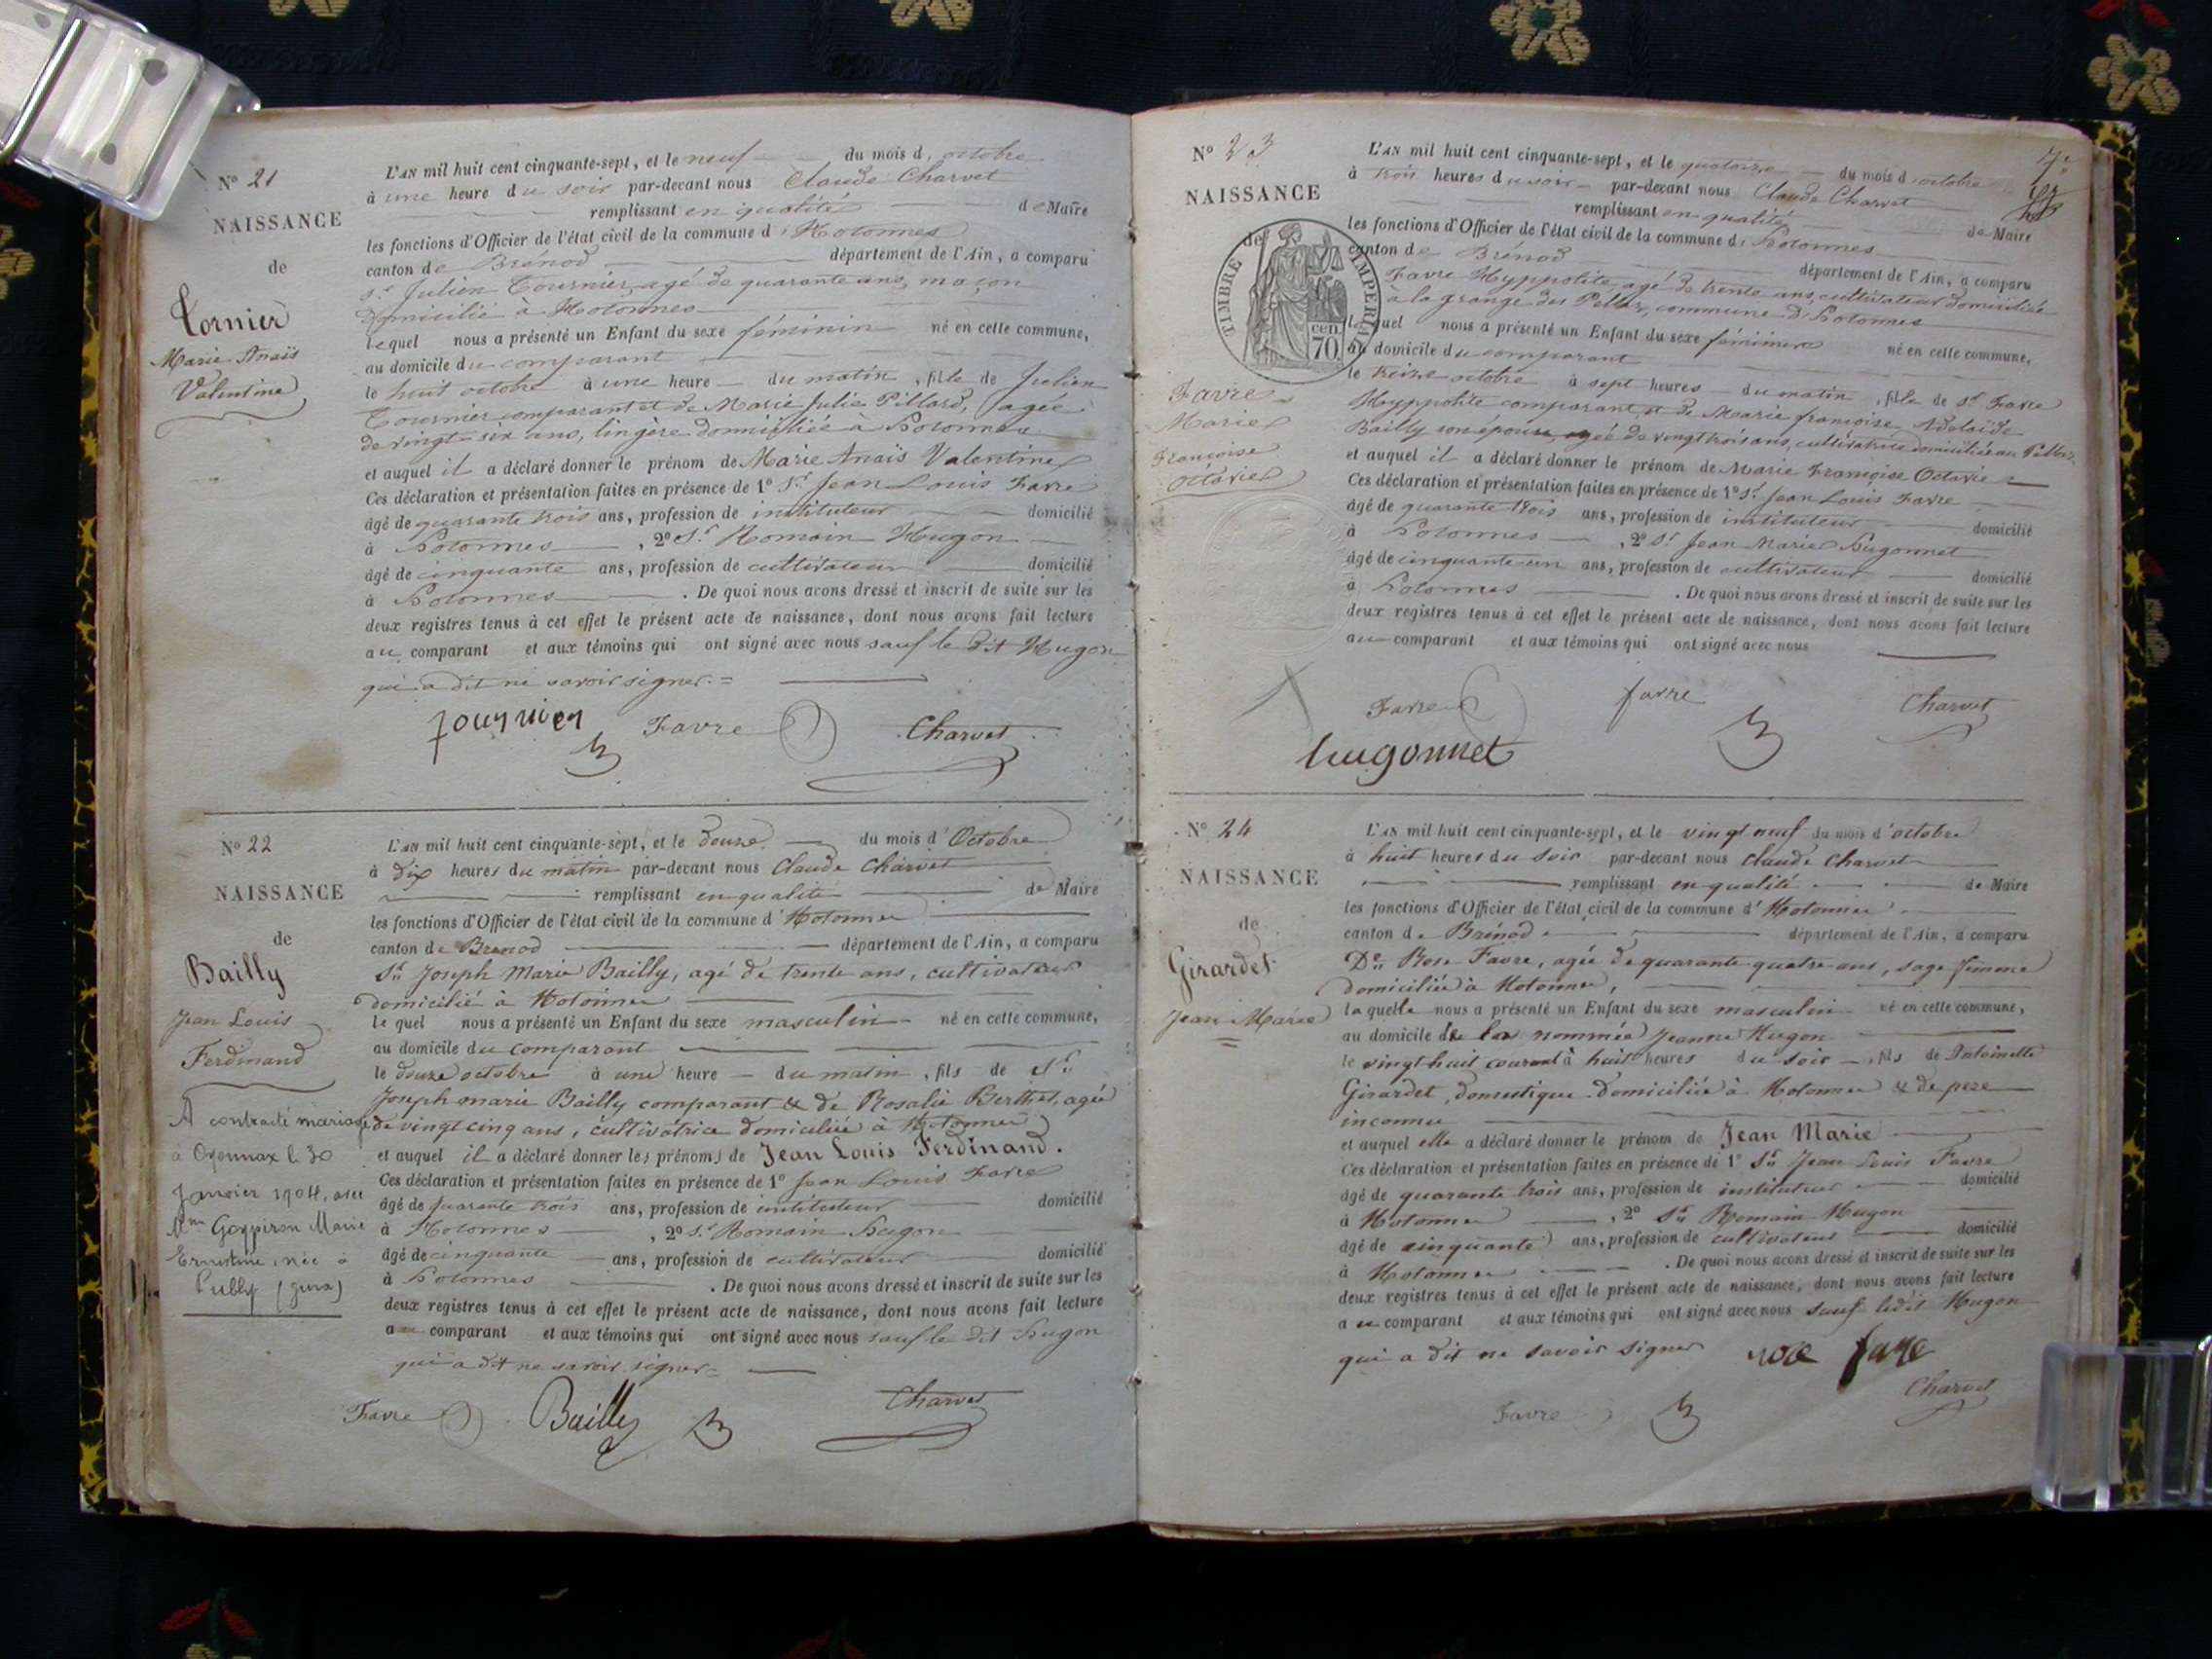 N° 21
NAISSANCE
de
Tornier
Marie Anaïs
Valentine
L'AN mil huit cent cinquante-sept, et le neuf du mois d'octobre
à une heure du soir par-devant nous Claude Charvet
remplissant en qualité de Maire
les fonctions d'Officier de l'état civil de la commune d'Hotonnes
canton de Brénod département de l'Ain, a comparu
sr. Julien Tournier, agé de quarante ans, maçon
domicilié à Hotonnes
lequel nous a présenté un Enfant du sexe féminin né en cette commune,
au domicile du comparant
le huit octobre à une heure du matin, fille de Julien
Tournier comparant et de Marie Julie Pillard, agée
de vingt-six ans, lingère domiciliée à Hotonnes
et auquel il a déclaré donner le prénom de Marie Anaïs Valentine
Ces déclaration et présentation faites en présence de 1° Sr. Jean Louis Favre
âgé de quarante trois ans, profession de instituteur domicilié
à Hotonnes, 2° Sr. Romain Hugon
âgé de cinquante ans, profession de cultivateur domicilié
à Hotonnes. De quoi nous avons dressé et inscrit de suite sur les
deux registres tenus à cet effet le présent acte de naissance, dont nous avons fait lecture
au comparant et aux témoins qui ont signé avec nous sauf le dit Hugon
qui a dit ne savoir signer.=
Favre Charvet
N° 22
NAISSANCE
de
Bailly
Jean Louis
Ferdinand
A contracté mariage
à Oyonnax le 30
Janvier 1904, avec
Marie
Ernestine, née à
(Jura)
L'AN mil huit cent cinquante-sept, et le douze du mois d'Octobre
à dix heures du matin par-devant nous Claude Charvet
remplissant en qualité de Maire
les fonctions d'Officier de l'état civil de la commune d'Hotonnes
canton de Brenod département de l'Ain, a comparu
Sr. Joseph Marie Bailly, agé de trente ans, cultivateur
domicilié à Hotonnes
lequel nous a présenté un Enfant du sexe masculin né en cette commune,
au domicile du comparant
le douze octobre à une heure du matin, fils de Sr.
Joseph marie Bailly comparant & de Rosalie Berthet, agée
de vingt cinq ans, cultivatrice domiciliée à Hotonnes
et auquel il a déclaré donner les prénoms de Jean Louis Ferdinand.
Ces déclaration et présentation faites en présence de 1° Jean Louis Favre
âgé de quarante trois ans, profession de instituteur domicilié
à Hotonnes, 2° sr. Romain Hugon
âgé de cinquante ans, profession de cultivateur domicilié
à Hotonnes. De quoi nous avons dressé et inscrit de suite sur les
deux registres tenus à cet effet le présent acte de naissance, dont nous avons fait lecture
au comparant et aux témoins qui ont signé avec nous sauf le dit Hugon
qui a dit ne savoir signer=
Favre Bailly Charvet
N° 23
NAISSANCE
TIMBRE IMPERIAL
70 cen.
Favre
Marie
Françoise
Octavie
L'AN mil huit cent cinquante-sept, et le quatorze du mois d'octobre
à trois heures du soir par-devant nous Claude Charvet
remplissant en qualité de Maire
les fonctions d'Officier de l'état civil de la commune d'Hotonnes
canton de Brénod département de l'Ain, a comparu
Favre Hyppolite, agé de trente ans, cultivateur domicilié
à la grange des Pellaz, commune d'Hotonnes
lequel nous a présenté un Enfant du sexe féminin né en cette commune,
au domicile du comparant
le treize octobre à sept heures du matin, fille de sr. Favre
Hyppolite comparant et de Marie françoise Adelaïde
Bailly son épouse, agée de vingt trois ans, cultivatrice domiciliée au Pellaz
et auquel il a déclaré donner le prénom de Marie Françoise Octavie
Ces déclaration et présentation faites en présence de 1° Sr. Jean Louis Favre
âgé de quarante trois ans, profession de instituteur domicilié
à Hotonnes, 2° Sr. Jean Marie Hugonnet
âgé de cinquante un ans, profession de cultivateur domicilié
à Hotonnes. De quoi nous avons dressé et inscrit de suite sur les
deux registres tenus à cet effet le présent acte de naissance, dont nous avons fait lecture
au comparant et aux témoins qui ont signé avec nous
Favre favre Charvet
hugonnet
N° 24
NAISSANCE
de
Girardet
Jean Marie
L'AN mil huit cent cinquante-sept, et le vingt neuf du mois d'octobre
à huit heures du soir par-devant nous Claude Charvet
remplissant en qualité de Maire
les fonctions d'Officier de l'état civil de la commune d'Hotonnes
canton de Brénod département de l'Ain, a comparu
De. Rose Favre, agée de quarante quatre ans, sage femme
domiciliée à Hotonnes,
laquelle nous a présenté un Enfant du sexe masculin né en cette commune,
au domicile de la nommée Jeanne Hugon
le vingt huit courant à huit heures du soir, fils de Antoinette
Girardet, domestique domiciliée à Hotonnes & de pere
inconnu
et auquel elle a déclaré donner le prénom de Jean Marie
Ces déclaration et présentation faites en présence de 1° Sr. Jean Louis Favre
âgé de quarante trois ans, profession de instituteur domicilié
à Hotonnes, 2° Sr. Romain Hugon
âgé de cinquante ans, profession de cultivateur domicilié
à Hotonnes. De quoi nous avons dressé et inscrit de suite sur les
deux registres tenus à cet effet le présent acte de naissance, dont nous avons fait lecture
au comparant et aux témoins qui ont signé avec nous sauf ledit Hugon
qui a dit ne savoir signer
Favre Charvet